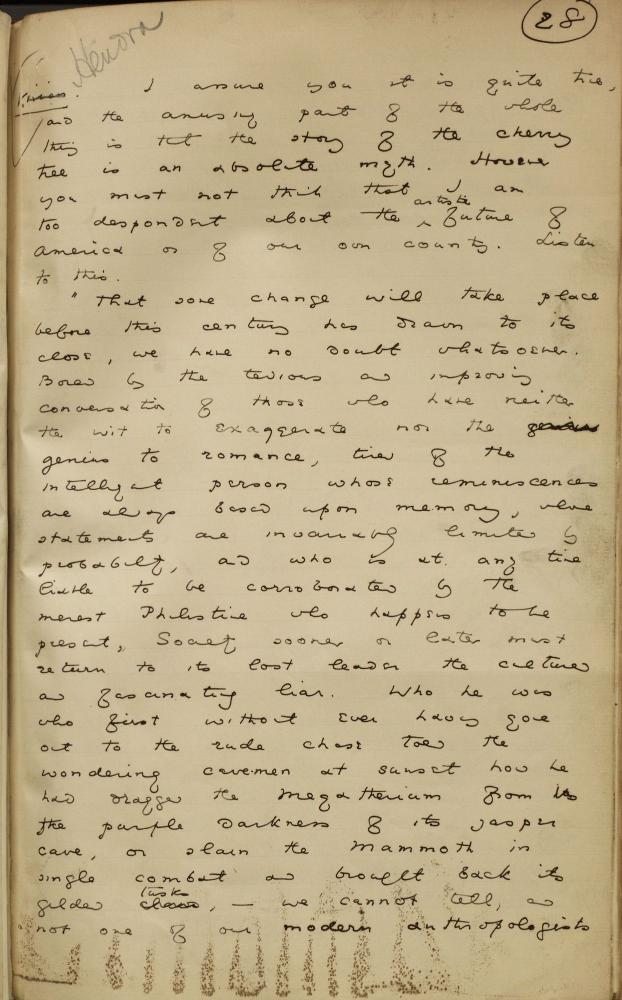 28
Vivian. I assure you it is quite true,
and the amusing part of the whole
thing is that the story of the cherry
tree is an absolute myth. However
you must not think that I am
artistic
too despondent about the future of
America or of our own country. Listen
to this.
"That some change will take place
before this century has drawn to its
close, we have no doubt whatsoever.
Bored by the tedious and improving
conversation of those who have neither
the wit to exaggerate nor the genius
genius to romance, tired of the
intelligent person whose reminiscences
are always based upon memory, whose
statements are invariably limited by
probability, and who is at any time
liable to be corroborated by the
merest Philistine who happens to be
present, Society sooner or later must
return to its lost leader the cultured
and fascinating liar. Who he was
who first without ever having gone
out to the rude chase told the
wondering cavemen at sunset how he
had dragged the Megatherium from its
the purple darkness of its jasper
cave, or slain the Mammoth in
single combat and brought back its
tusks
gilded claws, – we cannot tell, and
not one of our modern anthropologists